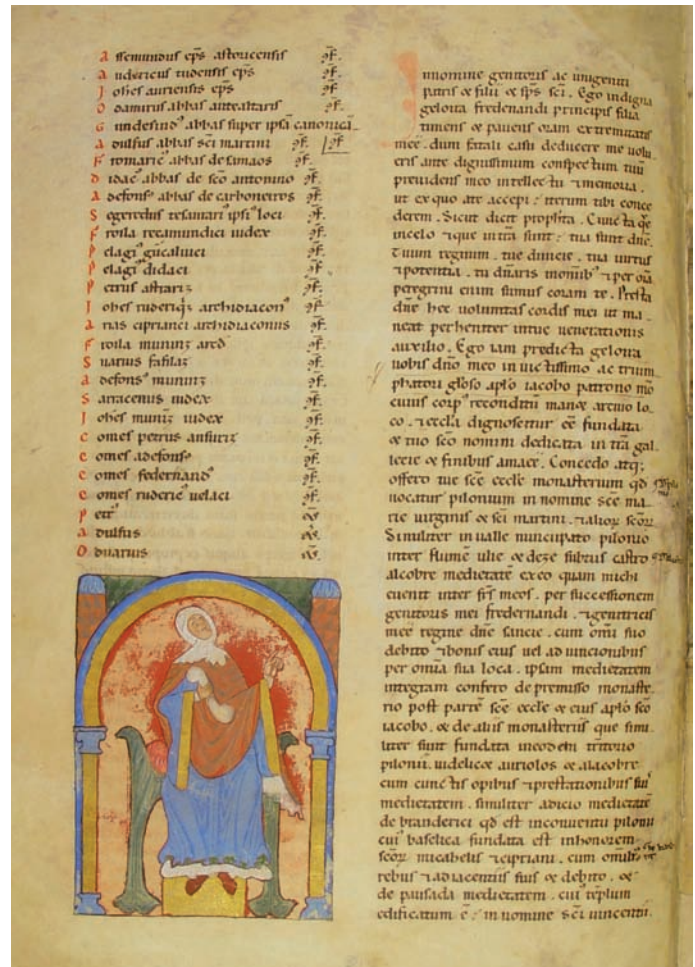 assemundus ep̄s astoricensis ɔf.
audericus tudensis ep̄s ɔf.
Johēs auriensis ep̄s ɔf.
Odamirus abbas antealtaris ɔf.
Gundesindꝰ abbas super ipsā canonicā.
adulfus abbas sc̄i martini ɔf. ɔf.
Fromaricꝰ abbas de ɔf.
didacꝰ abbas de sc̄o antonino ɔf.
adefonsꝰ abbas de carboneiros ɔf.
Segeredus tesaurariꝰ ipsiꝰ loci ɔf.
froila recamundici iudex ɔf.
Pelagiꝰ ɔf.
Pelagiꝰ didaci ɔf.
Petrus astrariz ɔf.
Johēs ruderiq̄z archidiaconꝰ ɔf.
arias ciprianci archidiaconus ɔf.
Froila muniuz arcd̄ ɔf.
Suarius fafilaz ɔf.
adefonsꝰ muniuz ɔf.
Sarracenus iudex ɔf.
Johēs muniz iudex ɔf.
Comes petrus ansuriz ɔf.
Comes adefonsꝰ ɔf.
Comes federnandꝰ ɔf.
Comes rudericꝰ uelaci ɔf.
Petrꝰ
adulfus
Oduarius
In nomine genitoris ac unigeniti
patris & filii & sp̄s sc̄i. Ego indigna
geloira fredenandi principis filia
timens & pauens oram extremitatis
meę. dum fatali casu deducere me uolu
eris ante dignissimum conspectum tuū
preuidens meo intellectu ⁊memoria.
ut ex quo a te accepi; iterum tibi conce
derem. Sicut dicit prophīa. Cuncta q̄e
in celo ⁊que in trā sunt; tua sunt dn̄e.
Tuum regnum. tue diuicie. tua uirtus
⁊potentia. tu dn̄aris omnibꝰ ⁊per oīā
peregrini enim sumus coram te. Presta
dn̄e hec uoluntas cordis mei ut ma
neat perhenniter intue uenerationis
auxilio. Ego iam predicta geloira
uobis dn̄o meo inuictissimo ac trium
phatori gl̄oso ap̄lo iacobo patrono mō
cuius corpꝰ reconditū manꝫ arcmo lo
co. ⁊eccl̄a dignoscitur eē fundata
& tuo sc̄o nomini dedicata in trā gal
lecie & finibus amaee. Concedo atqꝫ
offero tue sc̄e eccl̄e monasterium qd̄
uocatur pilonium in nomine sc̄e ma
rie uirginis & sc̄i martini. ⁊aliorꝫ sc̄orꝫ
Similiter in ualle nuncupato pilonio
inter flumē ulie & deze subtus castro
alcobre medietatē ex eo quam michi
euenit inter fr̄s meos. per successionem
genitoris mei fredernandi. ⁊genitricis
meę regine dn̄e sancie. cum omī suo
debito ⁊bonis eius uel ad iunctionibus
per omīa sua loca. ipsam medietatem
integram confero de premisso monaste
rio post partē sc̄e eccl̄e & eius ap̄lo sc̄o
iacobo. & de aliis monasteriis que simi
liter sunt fundata in eodem tr̄itorio
pilonii. uidelic& auriolos & alacobre
cum cunctis opibus ⁊prestationibus suiꝰ
medietatem. similiter adicio medietatē
de branderici qd̄ est in conuentu pilonii
cuiꝰ baselica fundata est in honorem
sc̄orꝫ micahelis ⁊cipriani. cum omībꝰ
rebus ⁊adiacentiis suis & debito. &
de pausada medietatem. cuiꝰ tēplum
edificatum ē; in nomine sc̄i uincentii.